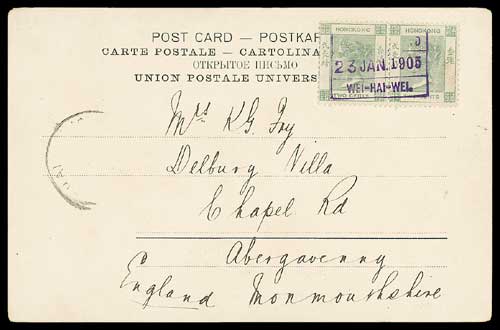 POST CARD — POSTKAR
CARTE POSTALE — CARTOLINA
ОТКРЫТОЕ ПИСЬМО
UNION POSTALE UNIVERS
HONGKONG HONGKONG
23 JAN. 1905
WEI-HAI-WEI.
TWO CENTS
Mrs K G. Fry
Delburg Villa
Chapel Rd
Abergavenny
England Monmouthshire